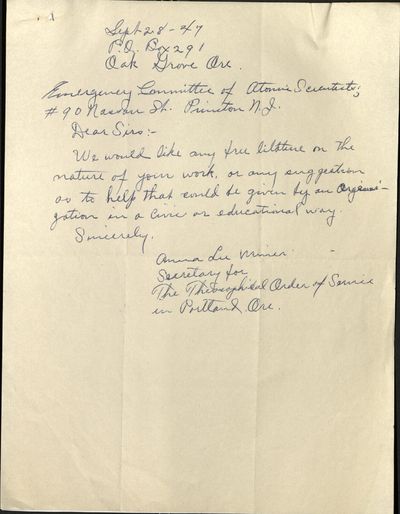 Sept 28-47
P.O. Box 291
Oak Grove Ore.
Emergency Committee of Atomic Scientists;
#90 Nassau St. Princton N.J.
Dear Sirs:-
We would like any free litature on the
nature of your work, or any suggestion
as to help that could be given by an organi-
zation in a civic or educational way.
Sincerely,
Anna Lee Miner
Secretary for
The Theosophical Order of Service
in Portland, Ore.